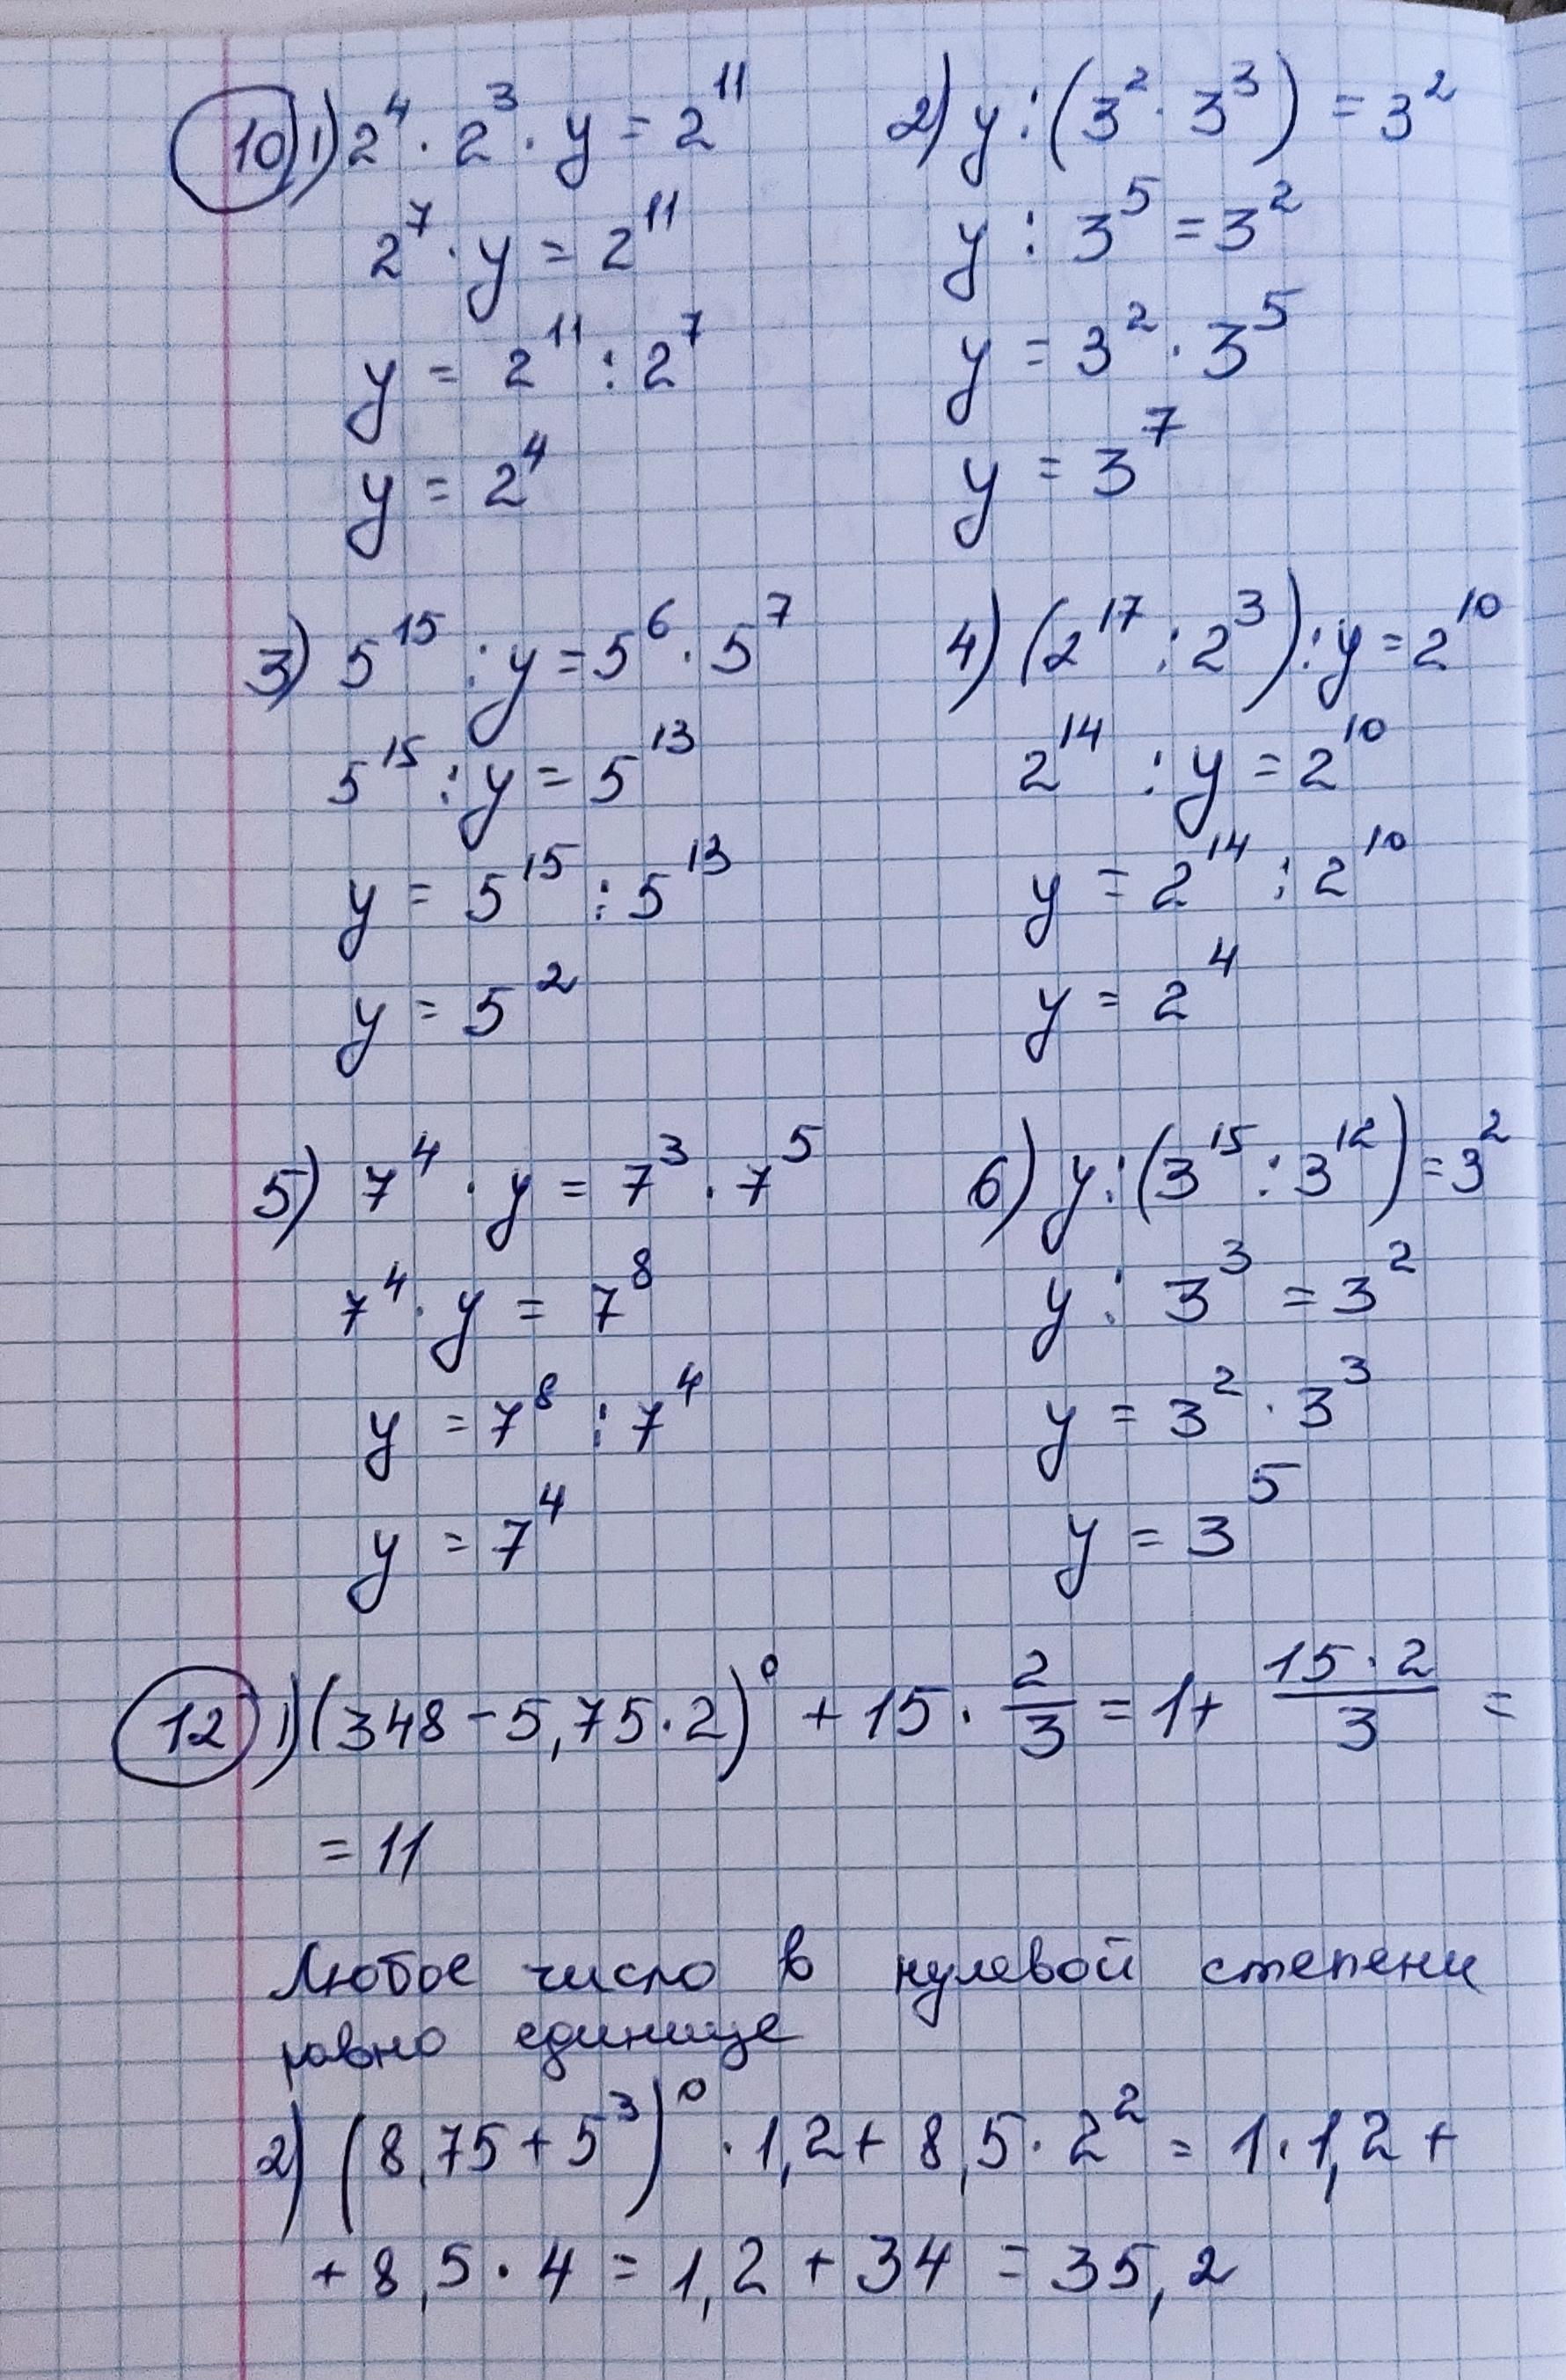 10 1) 2⁴ · 2³ · y = 2¹¹
2⁷ · y = 2¹¹
y = 2¹¹ : 2⁷
y = 2⁴
2) y : (3² · 3³) = 3²
y : 3⁵ = 3²
y = 3² · 3⁵
y = 3⁷
3) 5¹⁵ : y = 5⁶ · 5⁷
5¹⁵ : y = 5¹³
y = 5¹⁵ : 5¹³
y = 5²
4) (2¹⁷ : 2³) : y = 2¹⁰
2¹⁴ : y = 2¹⁰
y = 2¹⁴ : 2¹⁰
y = 2⁴
5) 7⁴ · y = 7³ · 7⁵
7⁴ · y = 7⁸
y = 7⁸ : 7⁴
y = 7⁴
6) y : (3¹⁵ : 3¹²) = 3²
y : 3³ = 3²
y = 3² · 3³
y = 3⁵
12 1) (348 - 5,75 · 2)⁰ + 15 · 2/3 = 1 + (15 · 2)/3 =
= 11
Любое число в нулевой степени
равно единице
2) (8,75 + 5³)⁰ · 1,2 + 8,5 · 2² = 1 · 1,2 +
+ 8,5 · 4 = 1,2 + 34 = 35,2